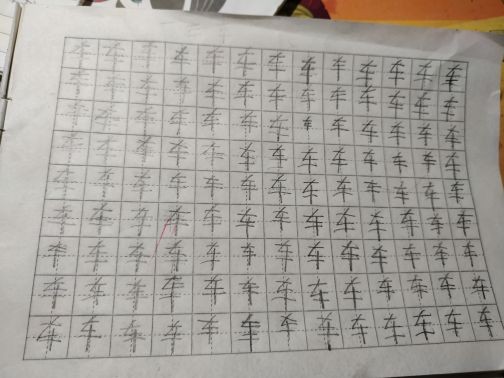 车车车车车车车车车车车车车
车车车车车车车车车车车车车
车车车车车车车车车车车车车
车车车车车车车车车车车车车
车车车车车车车车车车车车车
车车车车车车车车车车车车车
车车车车车车车车车车车车车
车车车车车车车车车车车车车
车车车车车车车车车车车车车